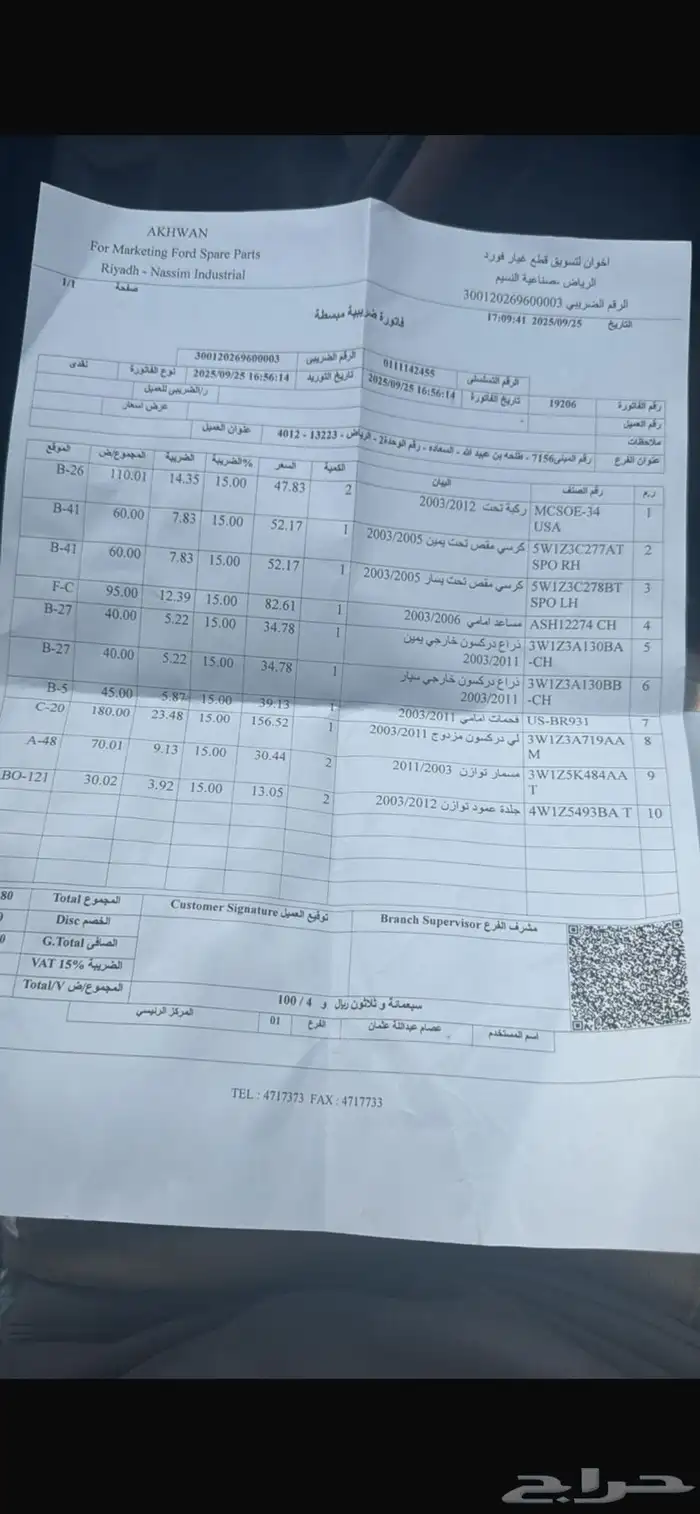 AKHWAN
For Marketing Ford Spare Parts
Riyadh - Nassim Industrial
اخوان لتسويق قطع غيار فورد
الرياض -صناعية النسيم
الرقم الضريبي 300120269600003
التاريخ 2025/09/25 17:09:41
صفحة 1/1
فاتورة ضريبية مبسطة
الرقم التسلسلي 0111142455 الرقم الضريبى 300120269600003
رقم الفاتورة 19206 تاريخ الفاتورة 2025/09/25 16:56:14 تاريخ التوريد 2025/09/25 16:56:14 نوع الفاتورة نقدى
رقم العميل ر/الضريبى للعميل
ملاحظات عرض اسعار
عنوان الفرع رقم المبنى7156 - طلحه بن عبيد الله - السعاده - رقم الوحدة2 - الرياض - 13223 - 4012 عنوان العميل
ر.م رقم الصنف البيان الكمية السعر %الضريبة الضريبة المجموع/ض الموقع
1 MCSOE-34 USA ركبة تحت 2003/2012 2 47.83 15.00 14.35 110.01 B-26
2 5W1Z3C277AT SPO RH كرسي مقص تحت يمين 2003/2005 1 52.17 15.00 7.83 60.00 B-41
3 5W1Z3C278BT SPO LH كرسي مقص تحت يسار 2003/2005 1 52.17 15.00 7.83 60.00 B-41
4 ASH12274 CH مساعد امامي 2003/2006 1 82.61 15.00 12.39 95.00 F-C
5 3W1Z3A130BA -CH ذراع دركسون خارجي يمين 2003/2011 1 34.78 15.00 5.22 40.00 B-27
6 3W1Z3A130BB -CH ذراع دركسون خارجي سيار 2003/2011 1 34.78 15.00 5.22 40.00 B-27
7 US-BR931 فحمات امامي 2003/2011 1 39.13 15.00 5.87 45.00 B-5
8 3W1Z3A719AA M لي دركسون مزدوج 2003/2011 1 156.52 15.00 23.48 180.00 C-20
9 3W1Z5K484AA T مسمار توازن 2011/2003 2 30.44 15.00 9.13 70.01 A-48
10 4W1Z5493BA T جلدة عمود توازن 2003/2012 2 13.05 15.00 3.92 30.02 BO-121
مشرف الفرع Branch Supervisor
توقيع العميل Customer Signature
المجموع Total
الخصم Disc
الصافى G.Total
الضريبة VAT 15%
المجموع/ض Total/V
سبعمائة و ثلاثون ريال و 4 / 100
اسم المستخدم عصام عبداللة عثمان الفرع 01 المركز الرئيسي
TEL : 4717373 FAX : 4717733
حراج